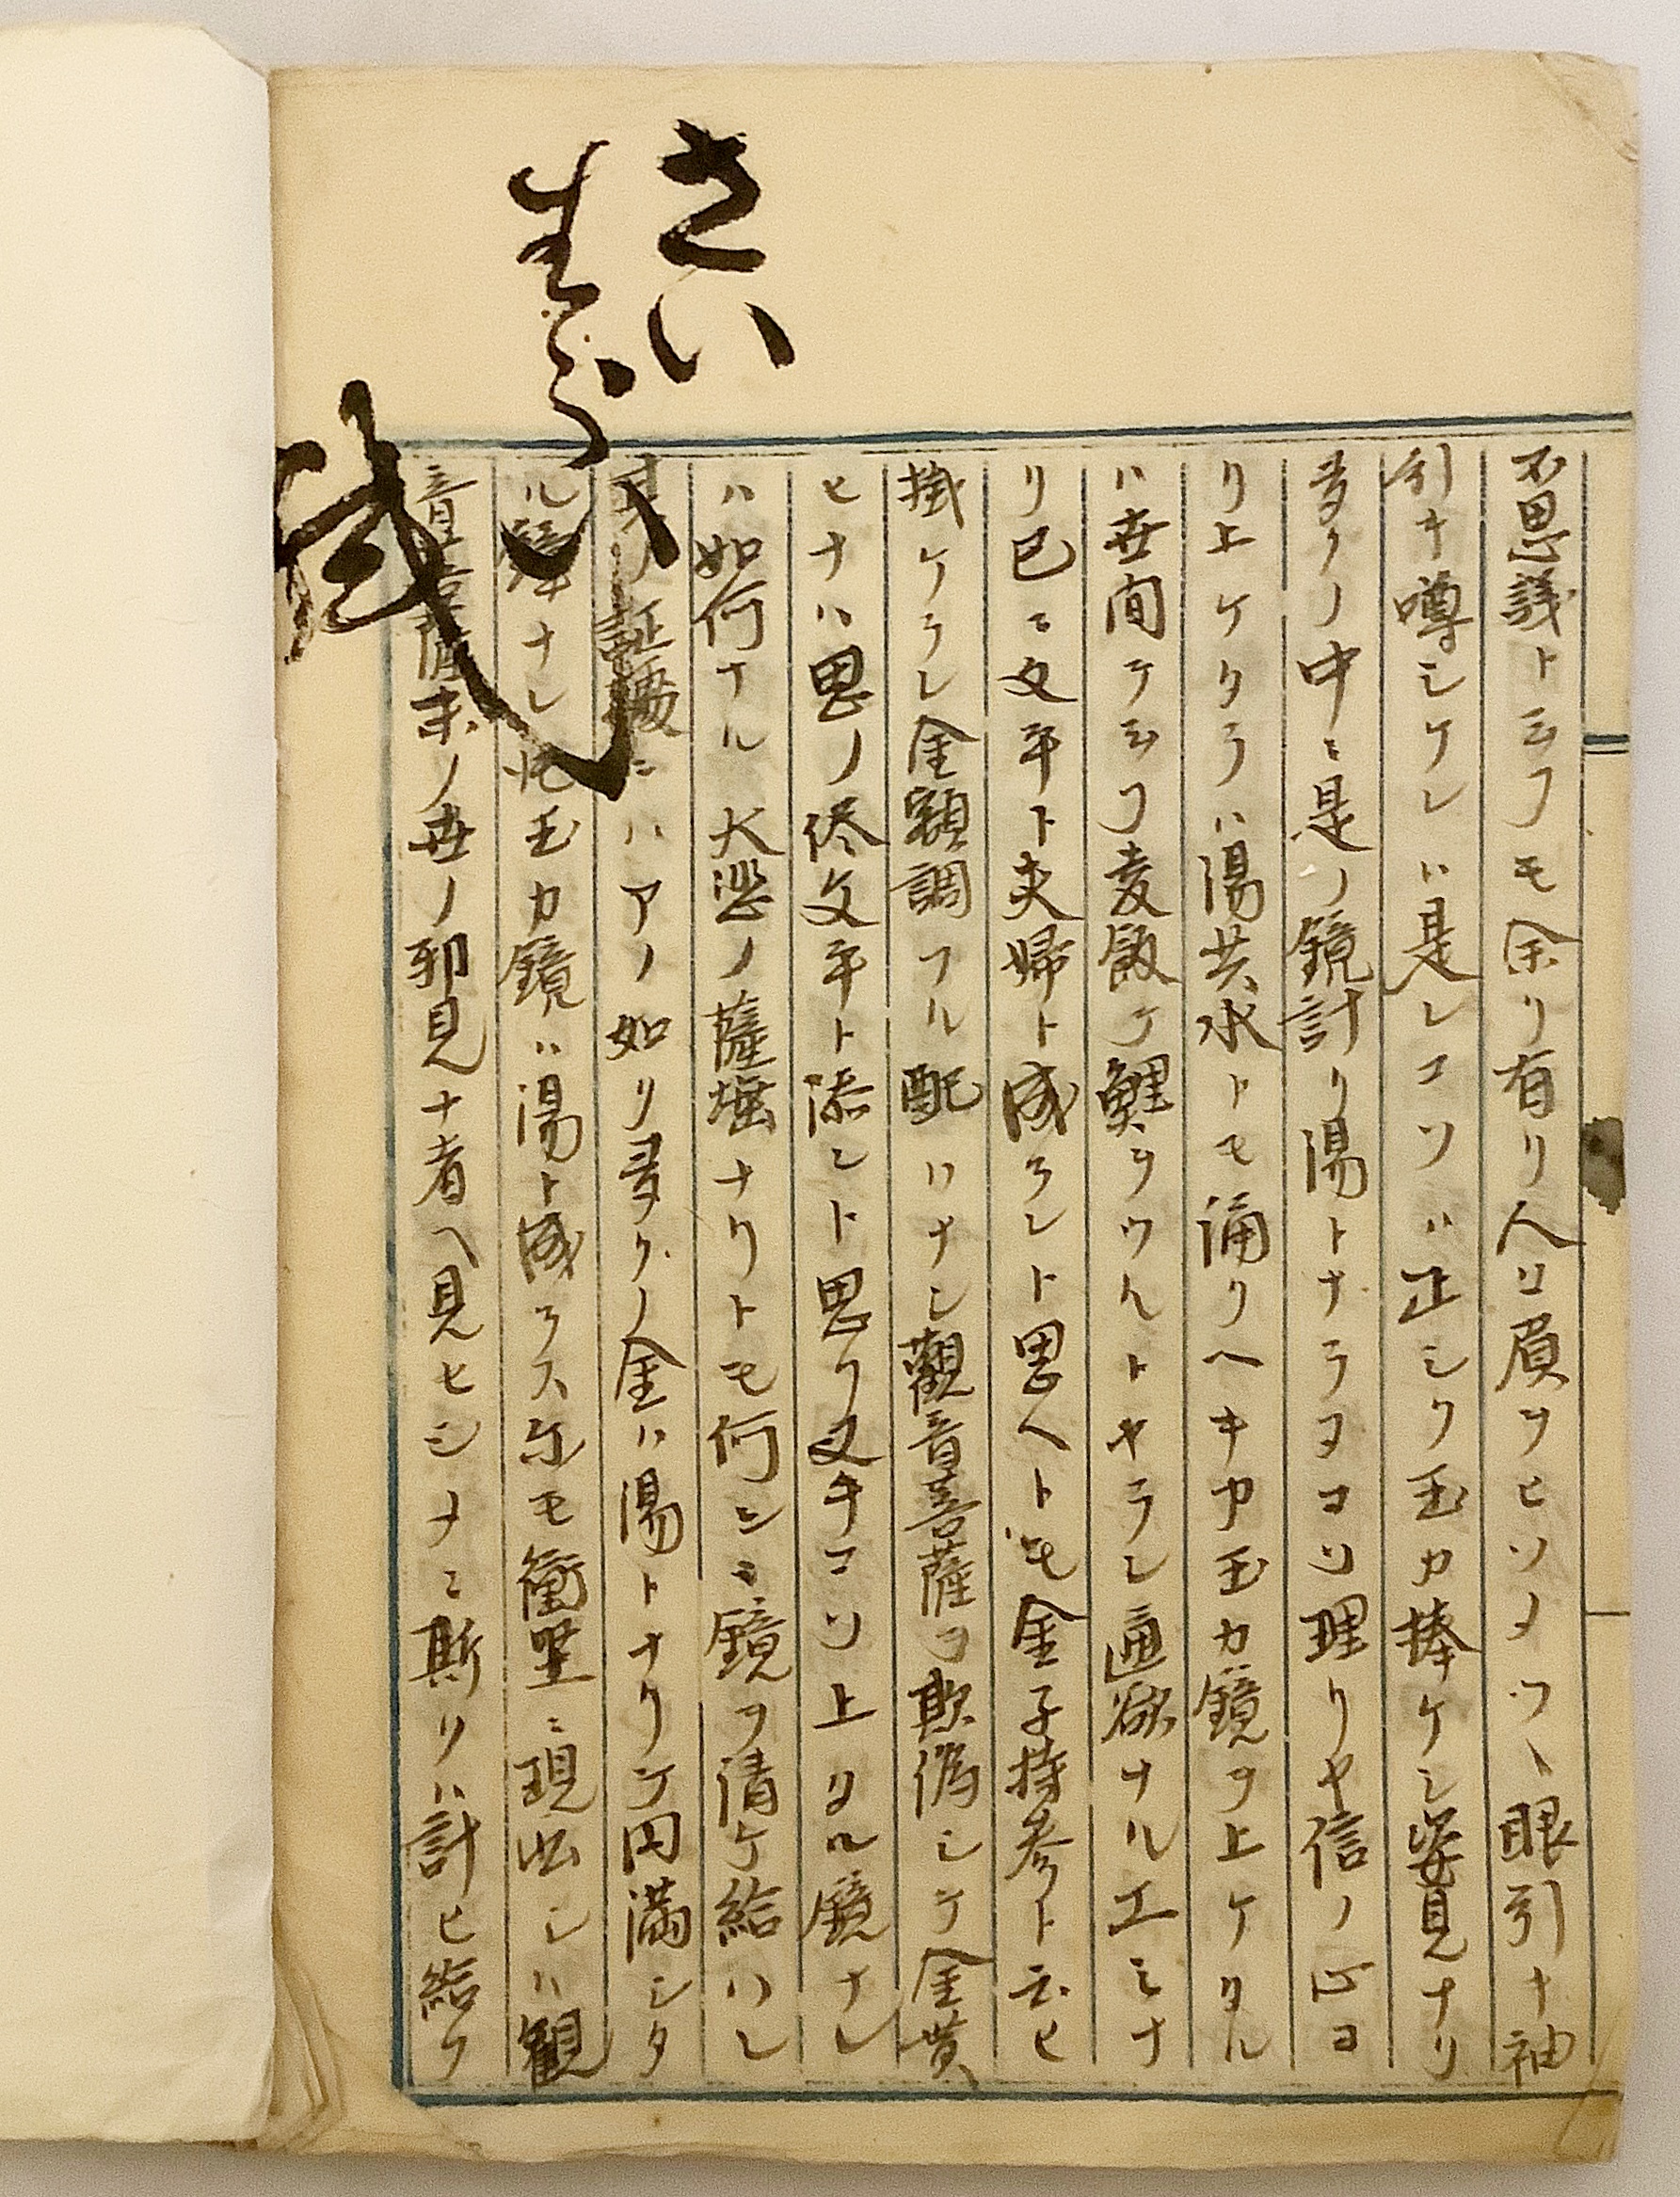 さい
不思議ト云フモ余リ有リ人ハ眉ヲヒソメツヽ眼引ナ袖
引キ噂シケレハ是レコソハ正シク玉カ捧ケシ姿見ナリ
多クノ中ニ是ノ鏡計リ湯トナラヌコソ理リヤ信ノ心ヨ
リ上ケタラハ湯共水トモ涌クヘキカ玉カ鏡ヲ上ケタル
ハ世間テ云フ麦飯テ鯉ヲツルトヤラン通欲ナル工ミナ
リ已ニ文平ト夫婦ト成ラント思ヘトモ金子持参ト云ヒ
掛ケラレ金額調フル配ハナシ觀音菩薩ヲ欺偽シテ金貰
ヒナハ思ノ侭文平ト添ント思フ文キコソ上タル鏡ナレ
ハ如何ナル大悲ノ薩埵ナリトモ何シニ鏡ヲ請ケ給ハン
現ノ証拠ニハアノ如ク多クノ金ハ湯トナリテ円満シタ
ル鐘ナレ𪜈玉カ鏡ハ湯ト成ラス尓モ衝堂ニ現出シハ観
音菩薩末ノ世ノ邪見ナ者ヘ見セシメニ斯クハ計ヒ給フ